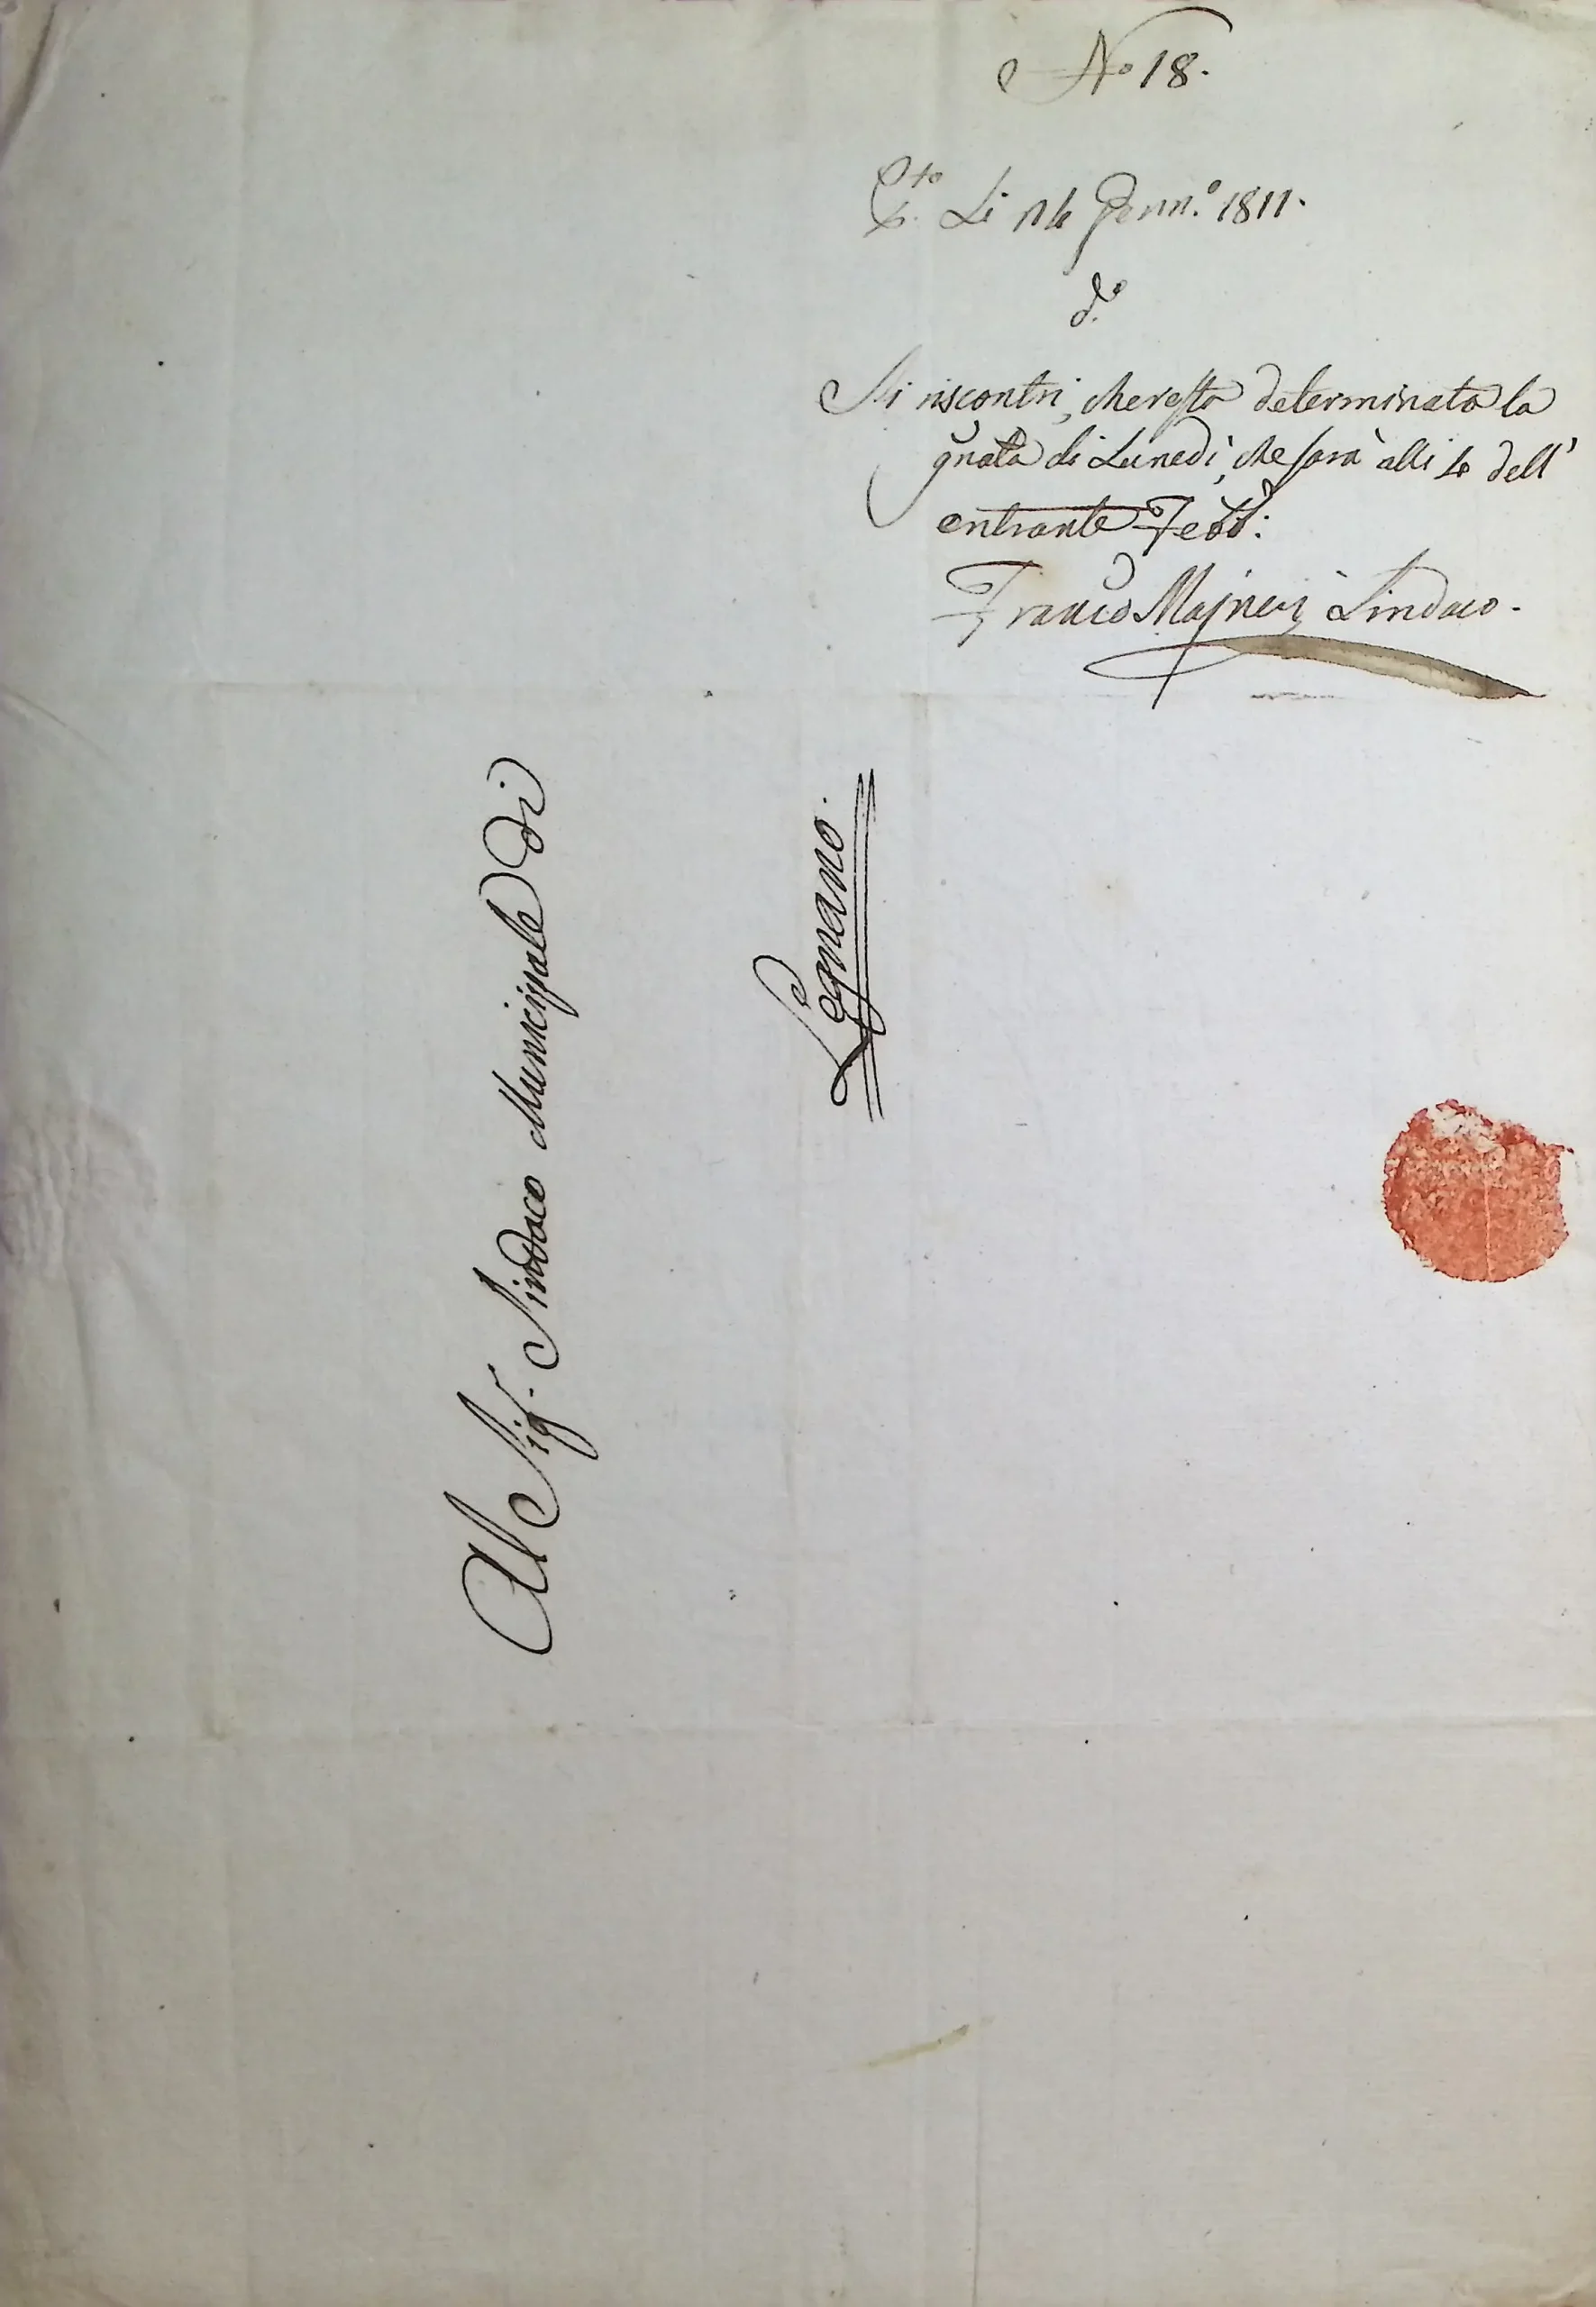 N.º 18.
Li 14 Genn.º 1811.
d.º
Si riscontri, che resta determinata la
gnata di Lunedì, che sarà alli 4 dell'
entrante Febb:
Franco Majneri Sindaco.
Al Sig. Sindaco Municipale di
Legnano.